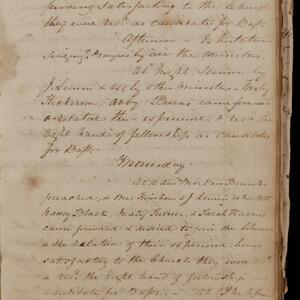 proving satisfactory to the Church
they were rec'd as candidates for Bap.
Afternoon - Exhortation
Singing & prayer by all the ministers
At night Sermon by
J. Lewis & by other ministers
came forward
& related their experience & rec'd the
right hand of fellowship as candidates
for Bap:
Monday
At 10 Am Bro. Van
preached, & Mr & J Lewis
Nancy Black, Turner, & Sarah Harris
came forward & desired to join the Church
& the relation of their experience being
satisfactory to the Church they were
rec. the right hand of fellowship as
candidates for Bap. - At